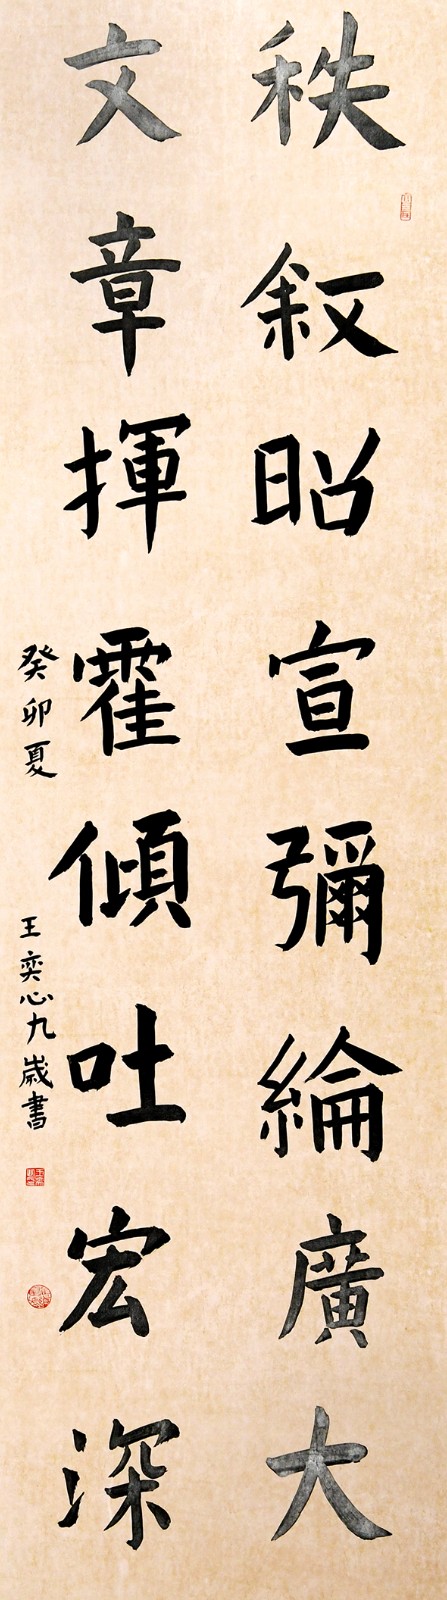 秩叙昭宣彌綸廣大
文章揮霍傾吐宏深
癸卯夏
王奕心九歲書